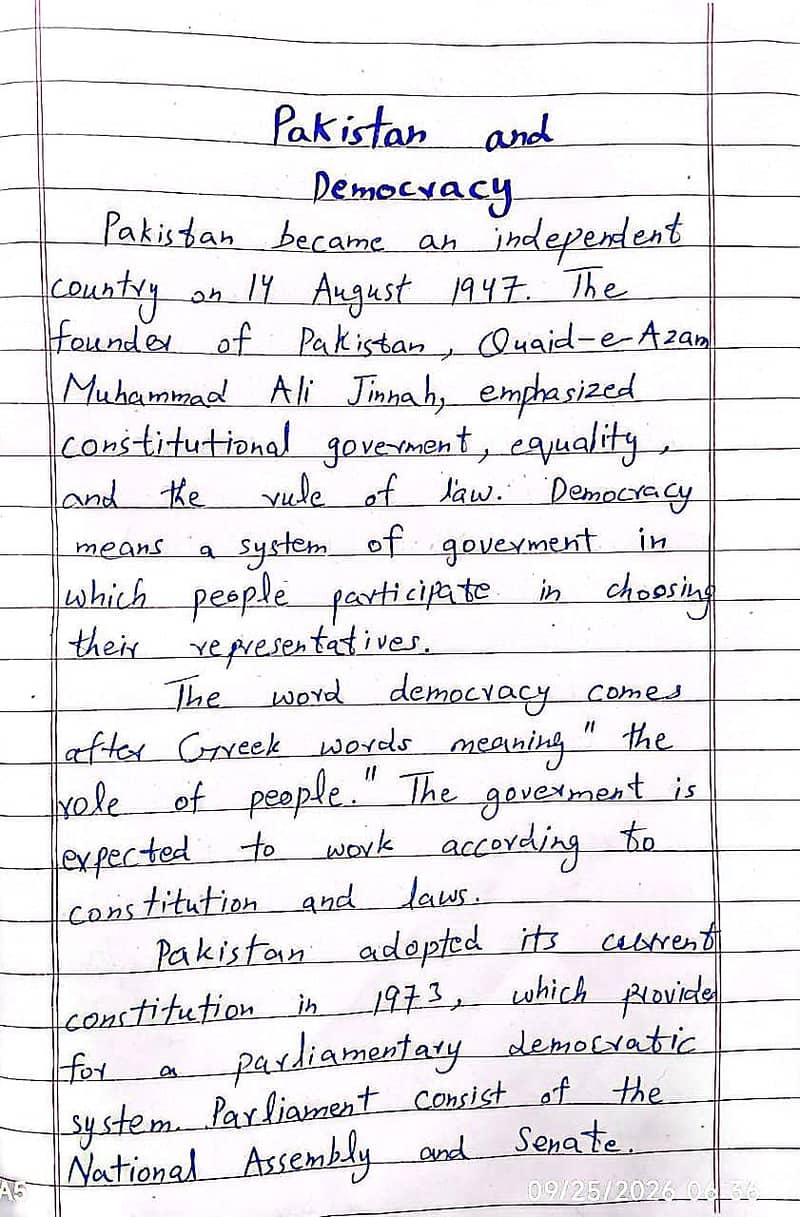 Pakistan and
Democracy
Pakistan became an independent
country on 14 August 1947. The
founder of Pakistan, Quaid-e-Azam
Muhammad Ali Jinnah, emphasized
constitutional goverment, equality,
and the rule of law. Democracy
means a system of goverment in
which people participate in choosing
their representatives.
The word democracy comes
after Greek words meaning "the
role of people." The goverment is
expected to work according to
constitution and laws.
Pakistan adopted its current
constitution in 1973, which provide
for a parliamentary democratic
system. Parliament consist of the
National Assembly and Senate.
A5 09/25/2026 06:36